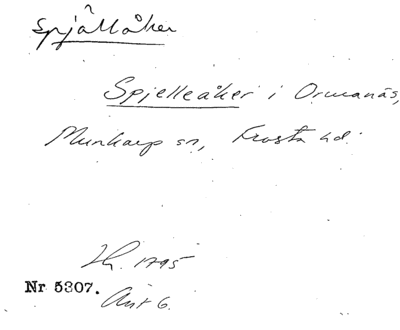 Spjällåker
Spjelleåker i Ormanäs,
Munkarp sn, Frosta hd.
1795
Nr 5307.
Akt 6.